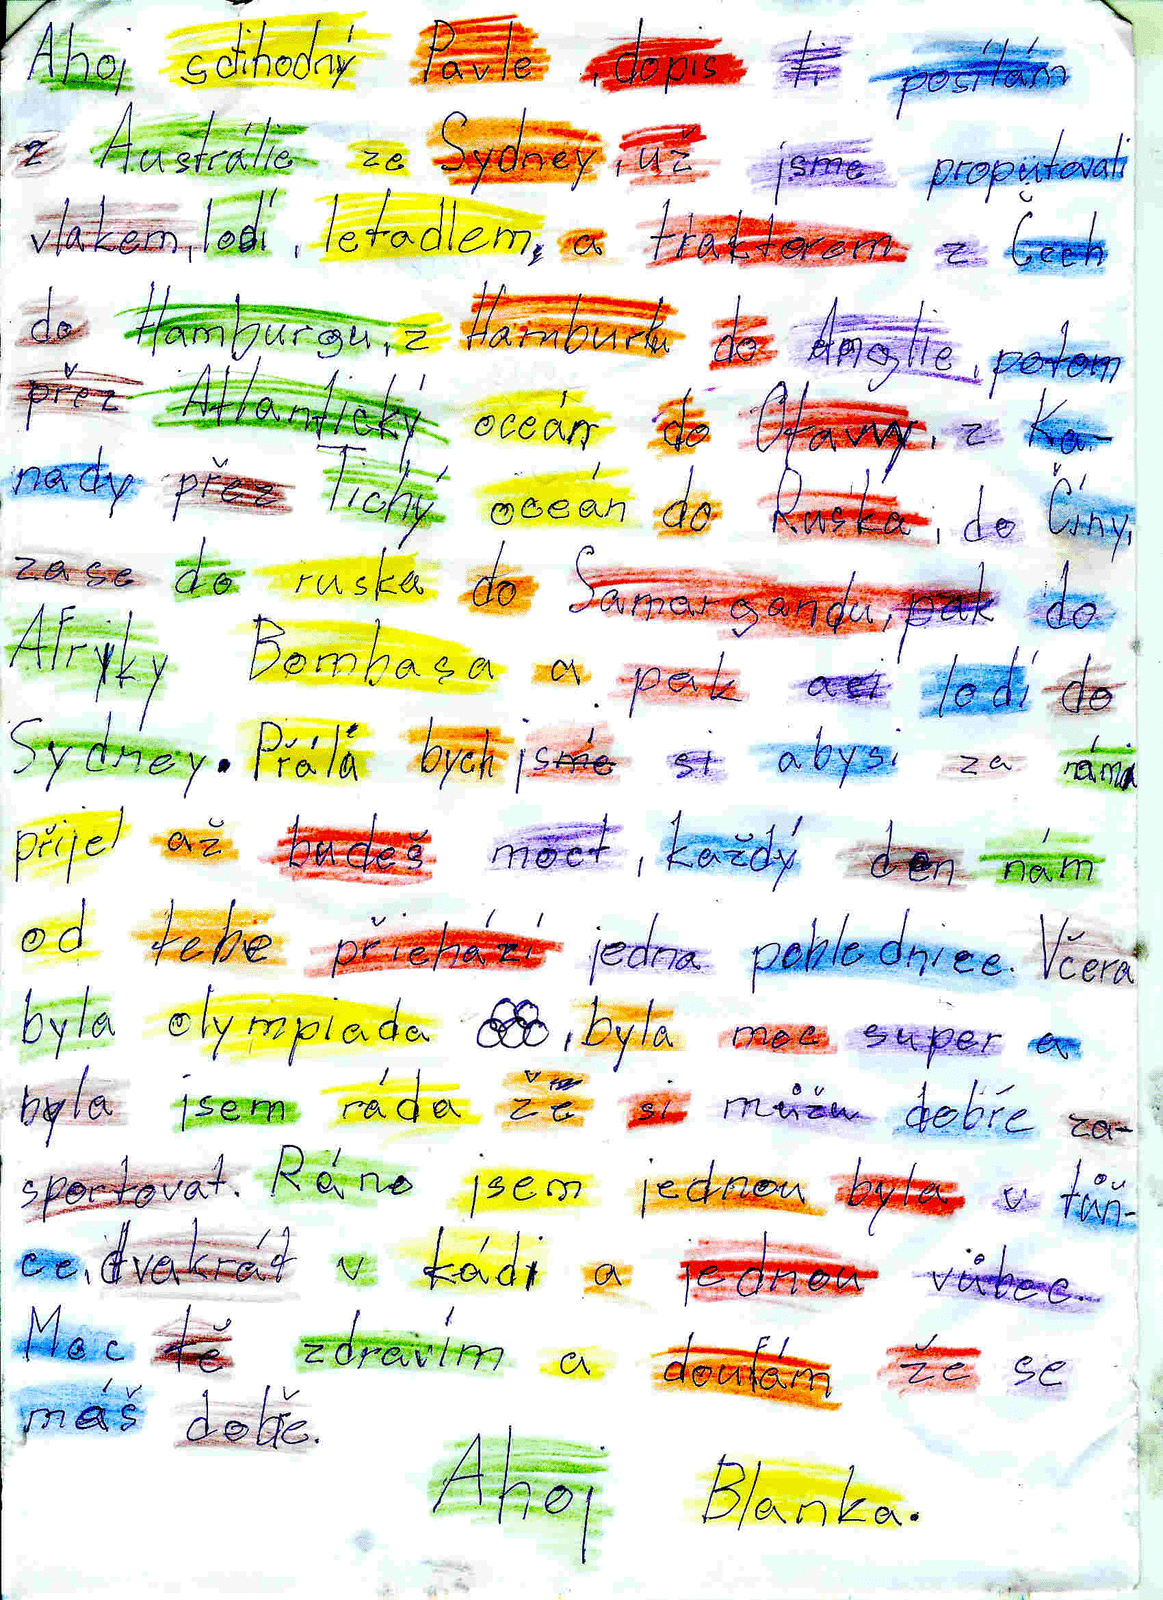 Ahoj ctihodný Pavle, dopis ti posílám
z Austrálie ze Sydney, už jsme propůtovali
vlakem, lodí, letadlem, a traktorem z Čech
do Hamburgu, z Hamburku do Anglie, potom
přez Atlantický oceán do Otavy, z Ka-
nady přez Tichý oceán do Ruska, do Číny,
zase do ruska do Samargandu, pak do
Afryky Bombasa a pak lodí do
Sydney. Přála bych si abysi za náma
přijel až budeš moct, každý den nám
od tebe přichází jedna pohlednice. Včera
byla olympiada, byla moc super a
byla jsem ráda že si můžu dobře za-
sportovat. Ráno jsem jednou byla v tůň-
ce, dvakrát v kádi a jednou vůbec.
Moc tě zdravím a doufám že se
máš dobře.
Ahoj Blanka.